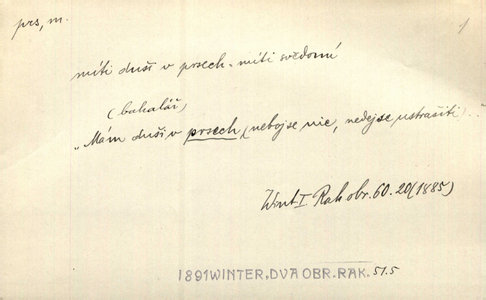 prs, m.
1
míti duši v prsech - míti svědomí
(bakalář)
„Mám duši v prsech, (neboj se nic, nedej se ustrašiti)..."
Wint I. Rak obr. 60. 20 (1885)
1891 WINTER, DVA OBR. RAK. 51.5